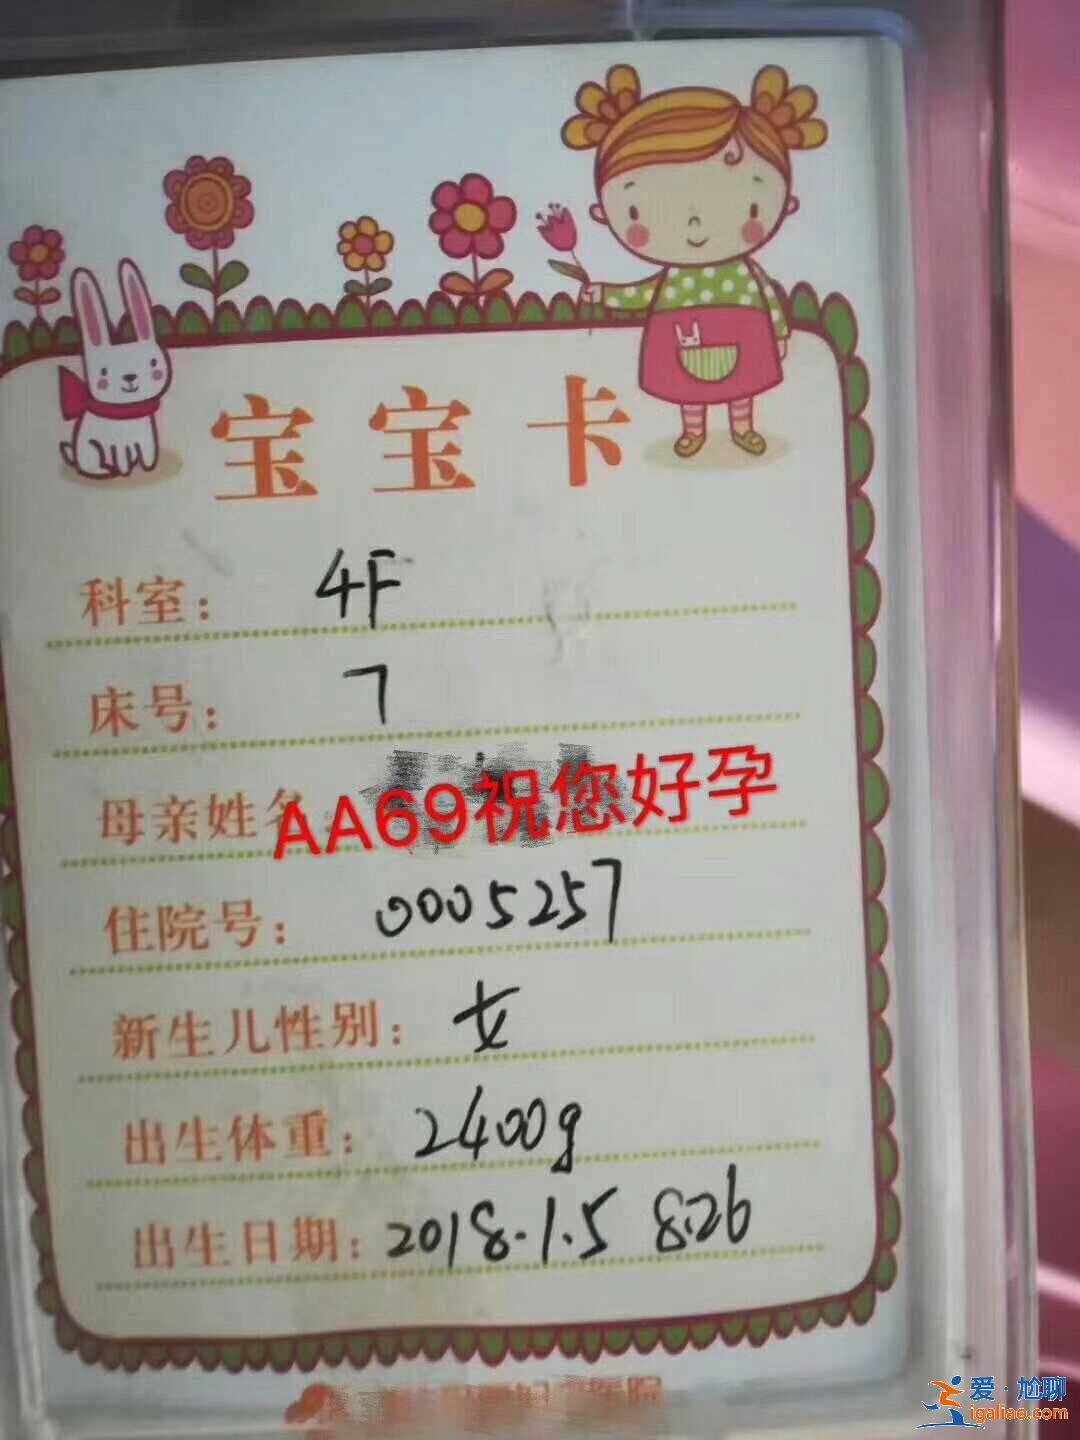 宝宝卡
科室： 4F
床号： 7
母亲姓名：
AA69祝您好孕
住院号： 0005257
新生儿性别： 女
出生体重： 2400g
出生日期： 2018.1.5 8:26
爱·尬聊
igaliao.com